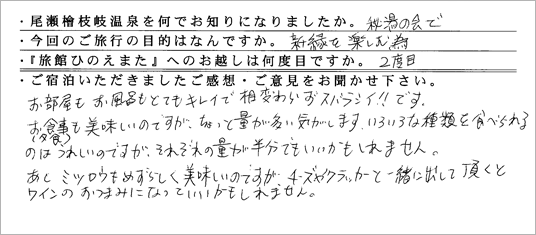 ・尾瀬檜枝岐温泉を何でお知りになりましたか。 秘湯の会で
・今回のご旅行の目的はなんですか。 新緑を楽しむ為
・『旅館ひのえまた』へのお越しは何度目ですか。 2度目
・ご宿泊いただきましたご感想・ご意見をお聞かせ下さい。
お部屋もお風呂もとてもキレイで相変わらずスバラシイ!!です。
お食事も美味しいのですが、ちょっと量が多い気がします。いろいろな種類を食べられる
(夕食)
のはうれしいのですが、それぞれの量が半分でもいいかもしれません。
あと ミツロウもめずらしく美味しいのですが、チーズやクラッカーと一緒に出して頂くと
ワインのおつまみになっていいかもしれません。